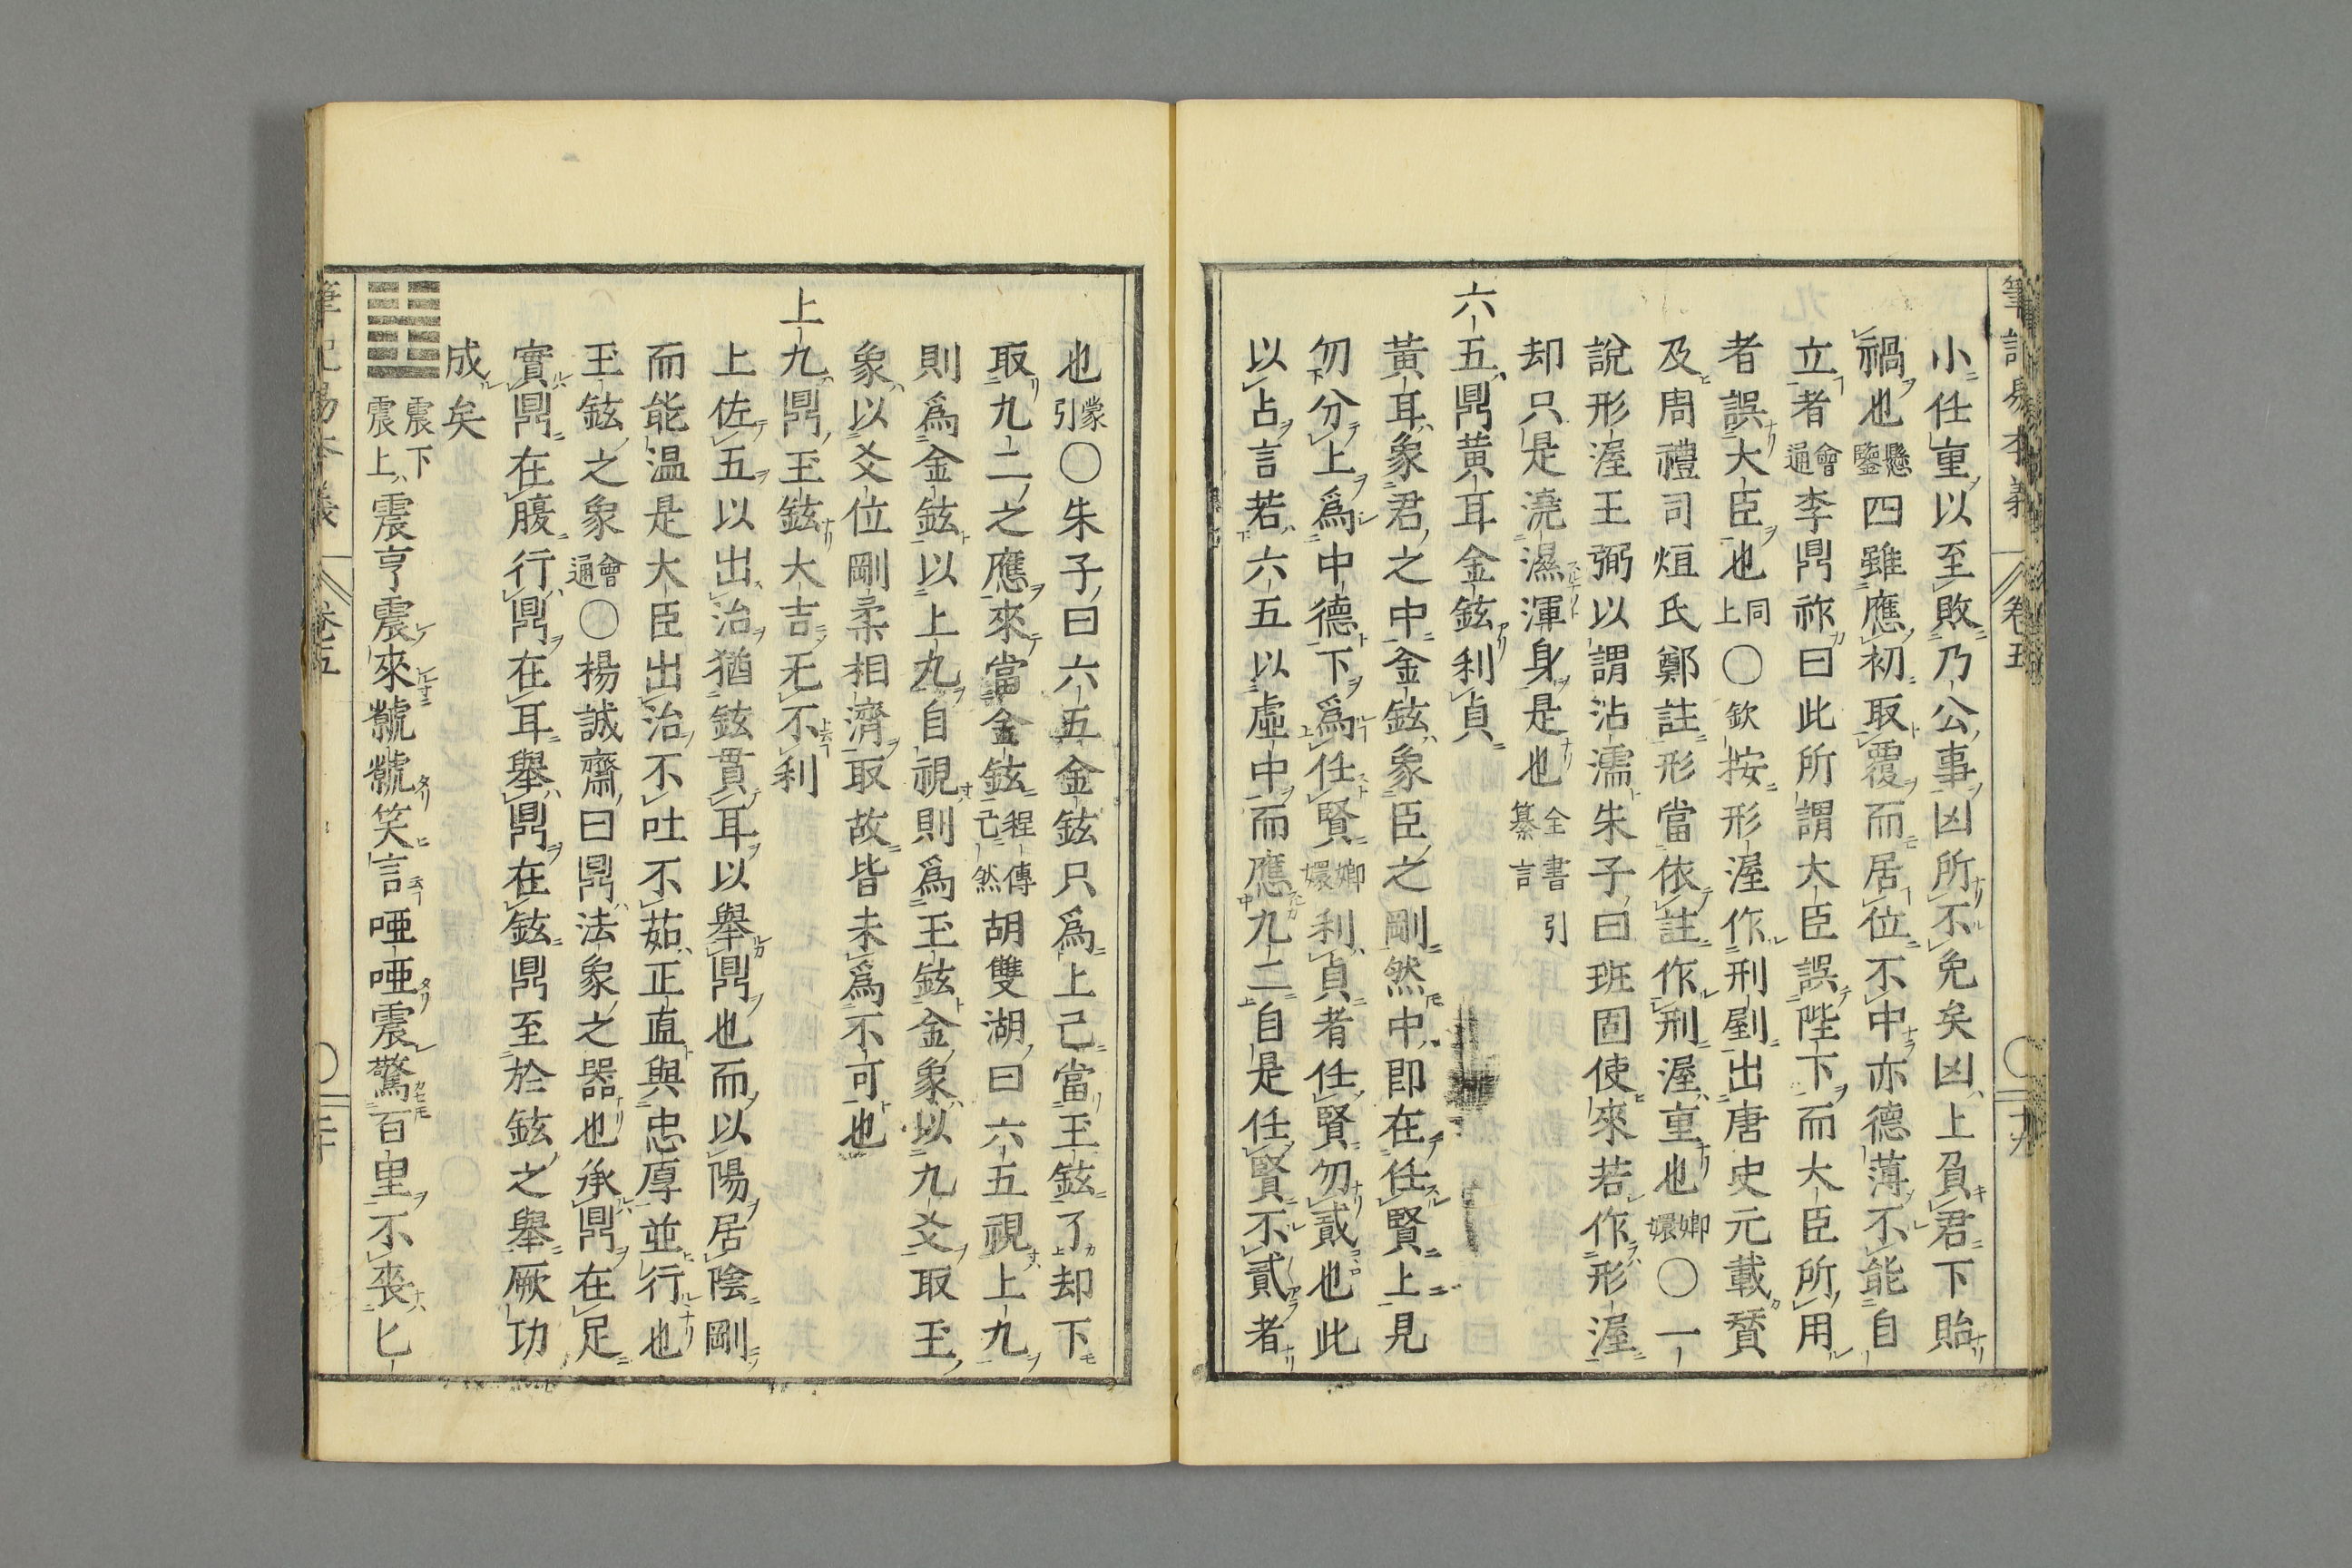 筆記易本義 卷五 〇 十九
小任重以至敗乃公事凶所不免矣凶上負君下貽
禍也懸鑒四雖應初取覆而居位不中亦德薄不能自
立者會通李鼎祚曰此所謂大臣誤陛下而大臣所用
者誤大臣也同上〇欽按形渥作刑剭出唐史元載賛
及周禮司烜氏鄭註形當依註作刑渥重也嫏嬛〇一
說形渥王弼以謂沾濡朱子曰班固使來若作形渥
却只是澆濕渾身是也全書纂言引
六五鼎黃耳金鉉利貞
黃耳象君之中金鉉象臣之剛然中即在任賢上見
勿分上爲中德下爲任賢嫏嬛利貞者任賢勿貳也此
以占言若六五以虛中而應九二自是任賢不貳者
也蒙引〇朱子曰六五金鉉只爲上己當玉鉉了却下
取九二之應來當金鉉程傳己然胡雙湖曰六五視上九
則爲金鉉以上九自視則爲玉鉉金象以九爻取玉
象以爻位剛柔相濟取故皆未爲不可也
上九鼎玉鉉大吉无不利
上佐五以出治猶鉉貫耳以舉鼎也而以陽居陰剛
而能温是大臣出治不吐不茹正直與忠厚並行也
玉鉉之象會通〇楊誠齋曰鼎法象之器也承鼎在足
實鼎在腹行鼎在耳舉鼎在鉉鼎至於鉉之舉厥功
成矣
䷲震下震上震亨震來虩虩笑言啞啞震驚百里不喪匕
筆記易本義 卷五 〇 二十